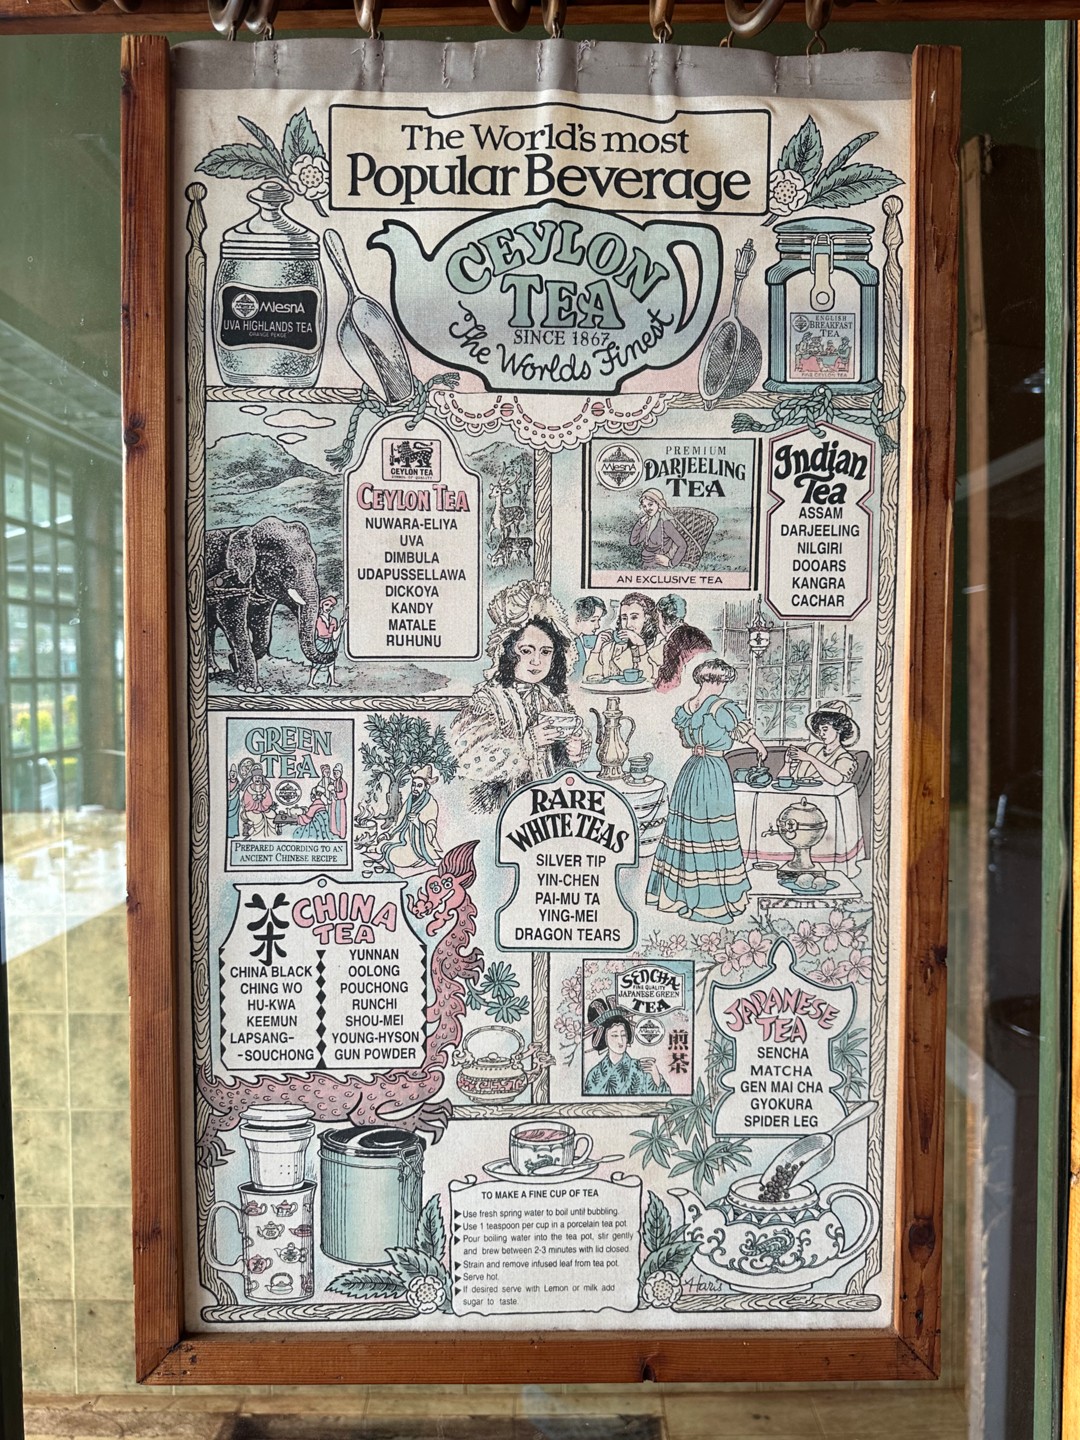 The World's most
Popular Beverage
CEYLON
TEA
SINCE 1867
The Worlds Finest
MlesnA
UVA HIGHLANDS TEA
ORANGE PEKOE
ENGLISH
BREAKFAST
TEA
CEYLON TEA
CEYLON TEA
NUWARA-ELIYA
UVA
DIMBULA
UDAPUSSELLAWA
DICKOYA
KANDY
MATALE
RUHUNU
MlesnA
PREMIUM
DARJEELING
TEA
AN EXCLUSIVE TEA
Indian
Tea
ASSAM
DARJEELING
NILGIRI
DOOARS
KANGRA
CACHAR
GREEN
TEA
PREPARED ACCORDING TO AN
ANCIENT CHINESE RECIPE
RARE
WHITE TEAS
SILVER TIP
YIN-CHEN
PAI-MU TA
YING-MEI
DRAGON TEARS
茶
CHINA
TEA
CHINA BLACK
CHING WO
HU-KWA
KEEMUN
LAPSANG-
-SOUCHONG
YUNNAN
OOLONG
POUCHONG
RUNCHI
SHOU-MEI
YOUNG-HYSON
GUN POWDER
SENCHA
FINE QUALITY
JAPANESE GREEN
TEA
MlesnA
煎茶
JAPANESE
TEA
SENCHA
MATCHA
GEN MAI CHA
GYOKURA
SPIDER LEG
TO MAKE A FINE CUP OF TEA
Use fresh spring water to boil until bubbling.
Use 1 teaspoon per cup in a porcelain tea pot.
Pour boiling water into the tea pot, stir gently
and brew between 2-3 minutes with lid closed.
Strain and remove infused leaf from tea pot.
Serve hot.
If desired serve with Lemon or milk add
sugar to taste.
Haris